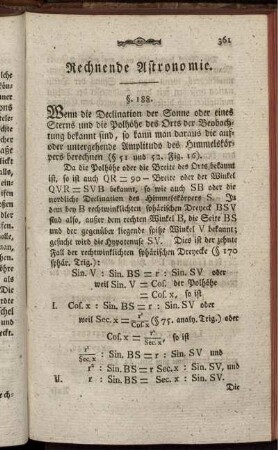 361
Rechnende Astronomie.
§. 188.
Wenn die Declination der Sonne oder eines
Sterns und die Polhöhe des Orts der Beobach-
tung bekannt sind, so kann man daraus die auf-
oder untergehende Amplituds des Himmelskör-
pers berechnen (§ 51 und 52. Fig. 16).
Da die Polhöhe oder die Breite des Orts bekannt
ist, so ist auch QR = 90 – Breite oder der Winkel
QVR = SVB bekannt, so wie auch SB oder die
nordliche Declination des Himmelskörpers S. In
dem bey B rechtwinklichten sphärischen Dreyeck BSV
sind also, außer dem rechten Winkel B, die Seite BS
und der gegenüber liegende spitze Winkel V bekannt;
gesucht wird die Hypotenuse SV. Dies ist der zehnte
Fall der rechtwinklichten sphärischen Dreyecke (§ 170
sphär. Trig.):
Sin. V : Sin. BS = r : Sin. SV oder
weil Sin. V = Cos. der Polhöhe
= Cos. x, so ist
I. Cos. x : Sin. BS = r : Sin. SV oder
weil Sec. x = r² / Cos. x (§ 75. analyt. Trig.) oder
Cos. x = r² / Sec. x, so ist
r² / Sec. x : Sin. BS = r : Sin. SV und
r² : Sin. BS = r Sec. x : Sin. SV, und
II. r : Sin. BS = Sec. x : Sin. SV.
Die